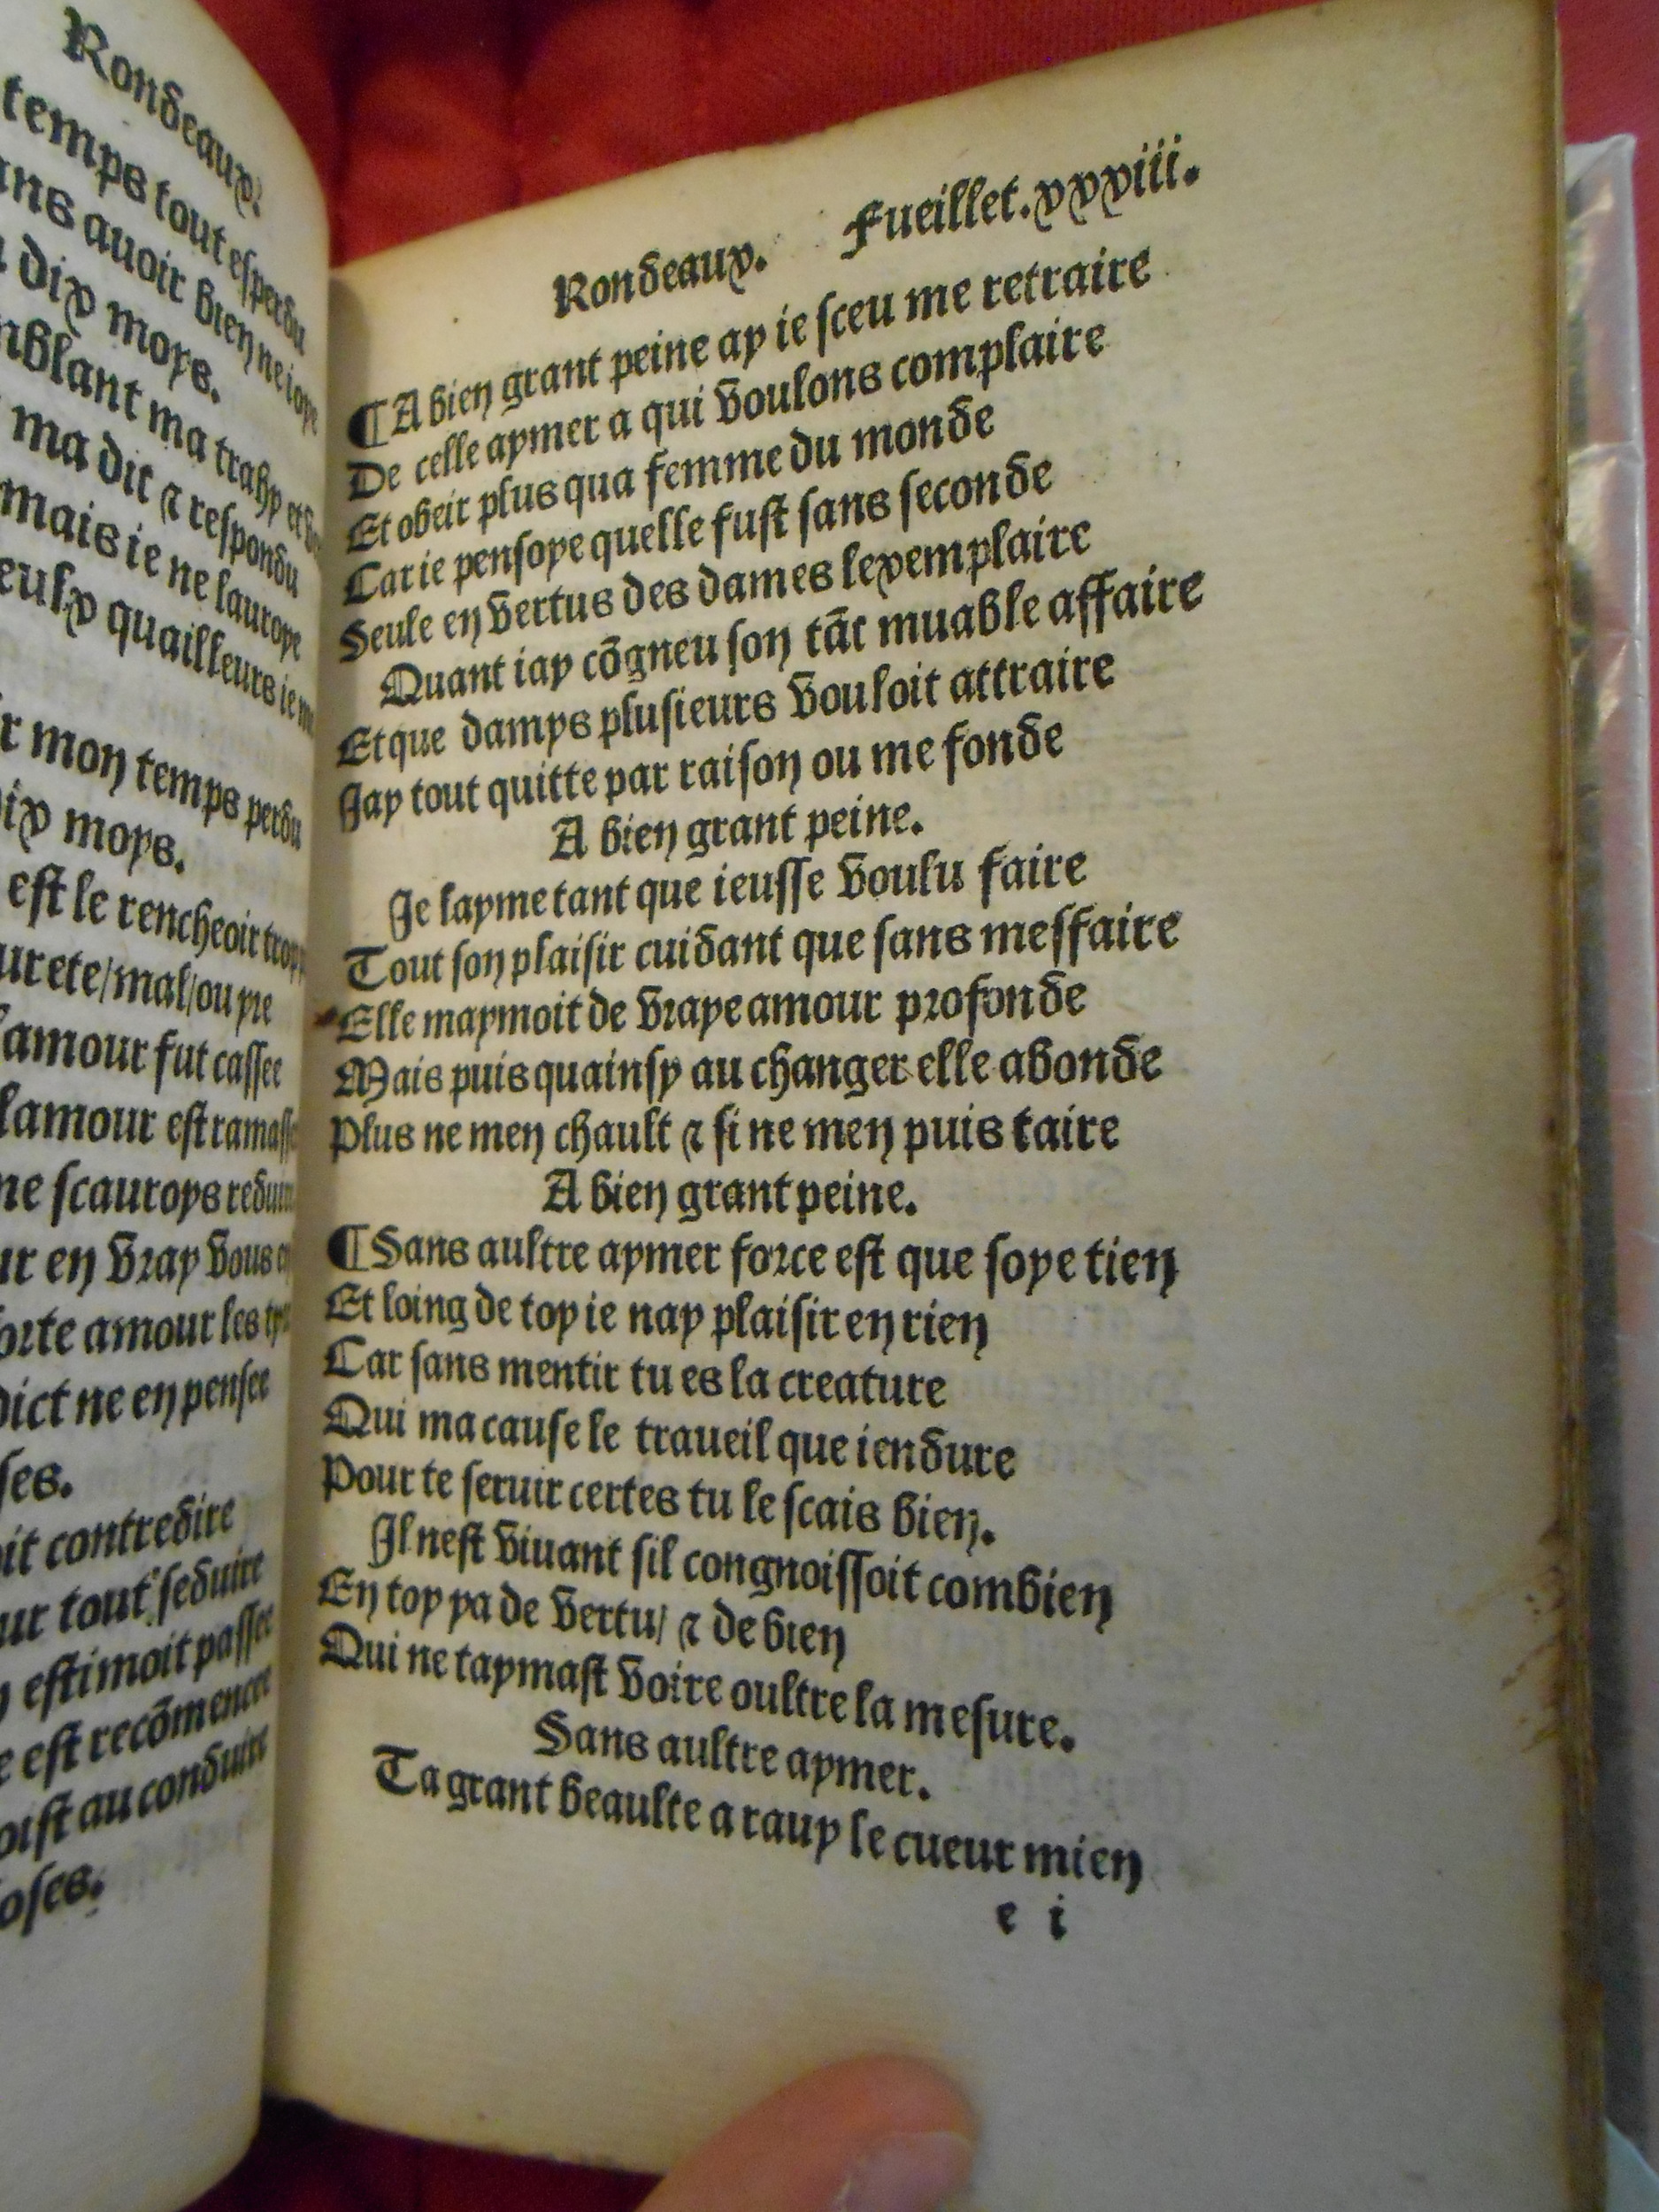 Rondeaux.
temps tout esperdu
ans auoir bien ne ioye
dix moys.
nblant ma trahy et
ma dit ⁊ respondu
mais ie ne lauroye
eulx quailleurs ie
r mon temps perdu
ix moys.
est le rencheoir trop
urete/mal/ou pre
lamour fut cassee
lamour est ramasse
ne scauroys
ur en vray vous
orte amour les
dict ne en pensee
ses.
oit contredire
ur tout seduire
estimoit passee
e est recõmencee
oist au conduire
oses.
Rondeaux. Fueillet.xxxiii.
¶A bien grant peine ay ie sceu me retraire
De celle aymer a qui voulons complaire
Et obeir plus qua femme du monde
Car ie pensoye quelle fust sans seconde
Seule en vertus des dames lexemplaire
Quant iay cõgneu son tãt muable affaire
Et que damys plusieurs vouloit attraire
Jay tout quitte par raison ou me fonde
A bien grant peine.
Je layme tant que ieusse voulu faire
Tout son plaisir cuidant que sans mesfaire
Elle maymoit de vraye amour profonde
Mais puis quainsy au changer elle abonde
Plus ne men chault ⁊ si ne men puis taire
A bien grant peine.
¶Sans aultre aymer force est que soye tien
Et loing de toy ie nay plaisir en rien
Car sans mentir tu es la creature
Qui ma cause le traueil que iendure
Pour te seruir certes tu le scais bien.
Il nest viuant sil congnoissoit combien
En toy ya de vertu/ ⁊ de bien
Qui ne taymast voire oultre la mesure.
Sans aultre aymer.
Ta grant beaulte a rauy le cueur mien
e i